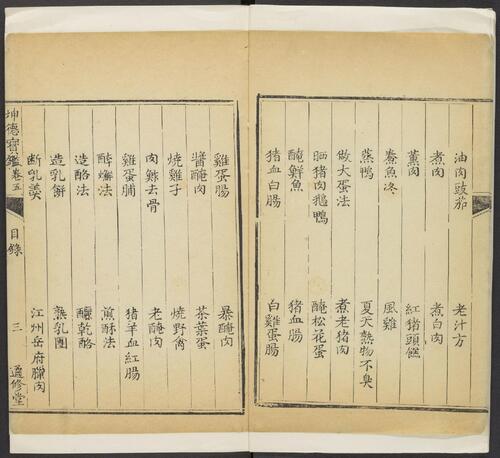 油肉豉茄 老汁方
煮肉 煮白肉
薰肉 紅猪頭
鰲魚凍 風雞
蒸鴨 夏天熱物不臭
做大蛋法 煮老猪肉
晒猪肉鵝鴨 醃松花蛋
醃鮮魚 猪血腸
猪血白腸 白雞蛋腸
雞蛋腸 暴醃肉
醬醃肉 茶葉蛋
燒雞子 燒野禽
肉鮝去骨 老醃肉
雞蛋脯 猪羊血紅腸
酥法 煎酥法
造酪法 釀乾酪
造乳餅 熬乳團
斷乳羹 江州岳府臘肉
坤德寶鑑卷五 目錄 三 遜修堂